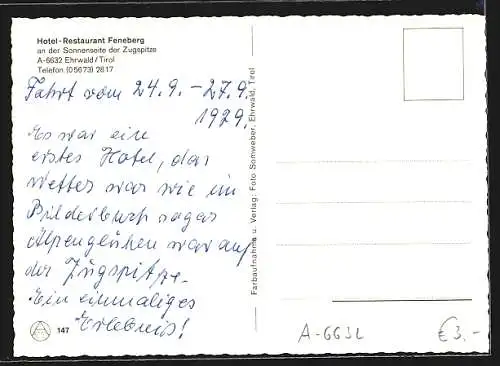 Hotel-Restaurant Feneberg
an der Sonnenseite der Zugspitze
A-6632 Ehrwald/Tirol
Telefon (05673) 2817
Fahrt vom 24.9. – 27.9.
1979.
Es war ein
erstes Hotel, das
Wetter war wie im
Bilderbuch sogar
Alpenglühen war auf
der Zugspitze.
Ein einmaliges
Erlebnis!
147
Farbaufnahme u. Verlag: Foto Somweber, Ehrwald, Tirol
A-6632
€ 3,-